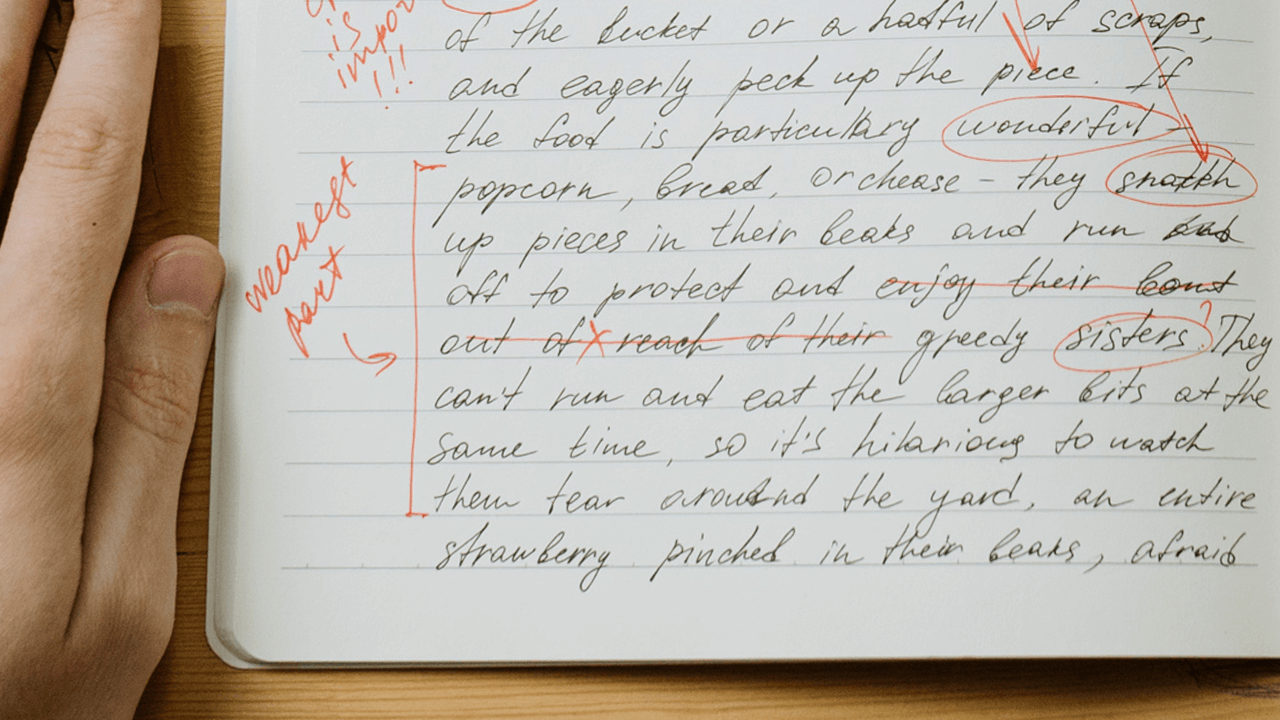 is
impor
!!!
of the bucket or a hatful of scraps,
and eagerly peck up the piece. If
the food is particullary wonderful -
popcorn, bread, or chease - they snatch
up pieces in their beaks and run
off to protect and enjoy their
out of x reach of their greedy sisters?. They
can't run and eat the larger bits at the
same time, so it's hilarious to watch
them tear around the yard, an entire
strawberry pinched in their beaks, afraid
weakest
part